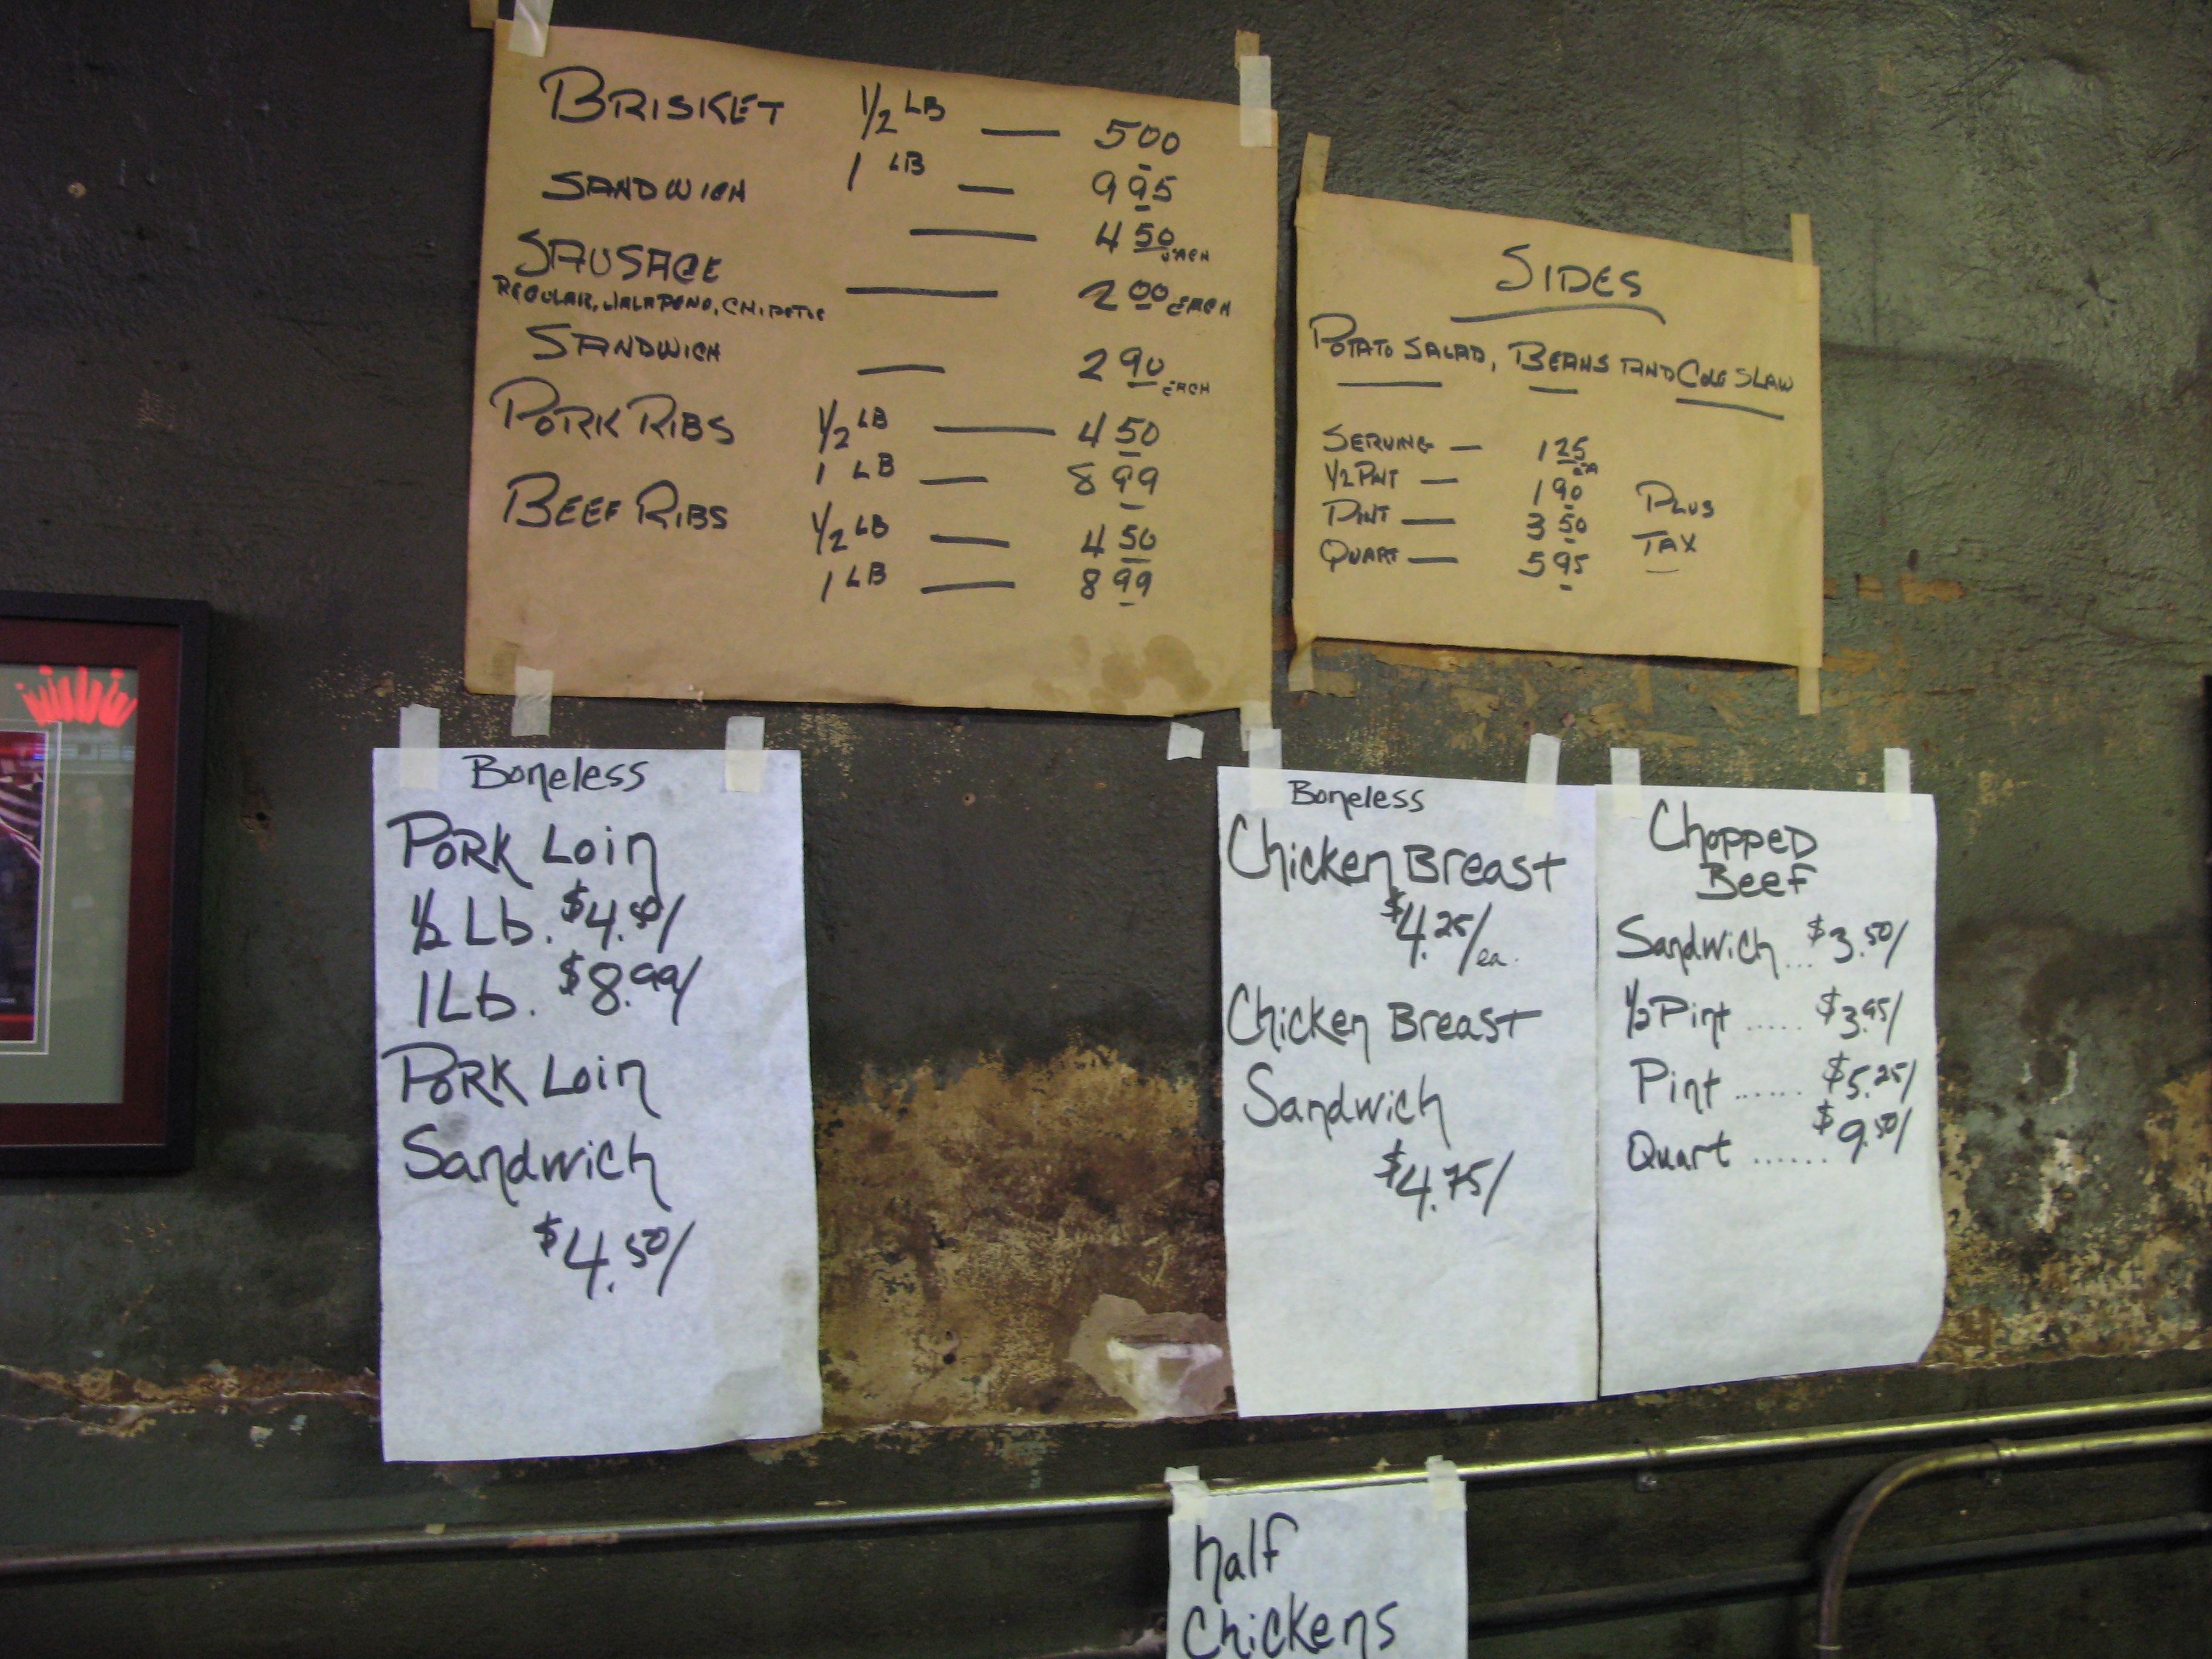 BRISKET 1/2 LB — 5 00
1 LB — 9 95
SANDWICH — 4 50 EACH
SAUSAGE
REGULAR, JALAPENO, CHIPOTLE — 2 00 EACH
SANDWICH — 2 90 EACH
PORK RIBS 1/2 LB — 4 50
1 LB — 8 99
BEEF RIBS 1/2 LB — 4 50
1 LB — 8 99
SIDES
POTATO SALAD, BEANS AND COLE SLAW
SERVING — 1 25 EA
1/2 PINT — 1 90
PINT — 3 50
QUART — 5 95
PLUS
TAX
Boneless
PORK Loin
1/2 Lb. $4.50/
1 Lb. $8.99/
PORK Loin
Sandwich
$4.50/
Boneless
Chicken Breast
$4.25/ea.
Chicken Breast
Sandwich
$4.75/
Chopped
Beef
Sandwich... $3.50/
1/2 Pint ..... $3.95/
Pint ...... $5.25/
Quart ...... $9.50/
half
Chickens